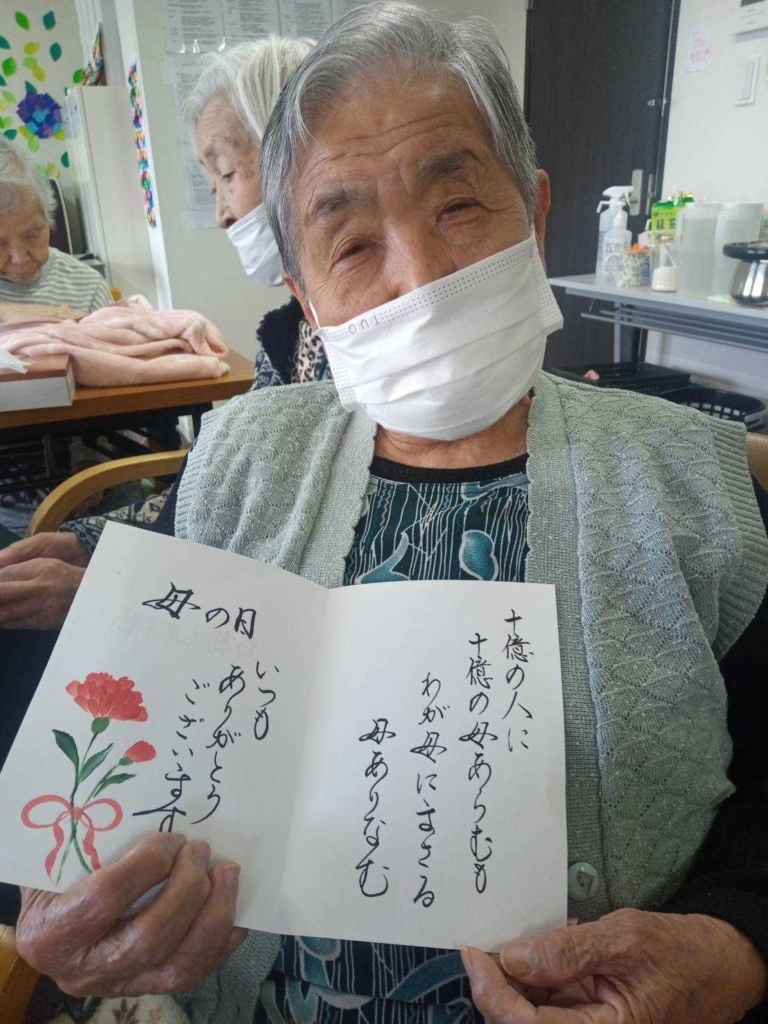 母の日
いつも
ありがとう
ございます
十億の人に
十億の母あらむも
わが母にまさる
母ありなむ